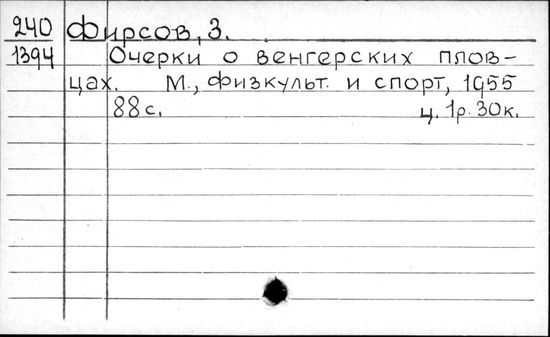 240 Фирсов, З.
1394 Очерки о венгерских плов-
цах. М., физкульт. и спорт, 1955
88 с. ц. 1р. 30к.